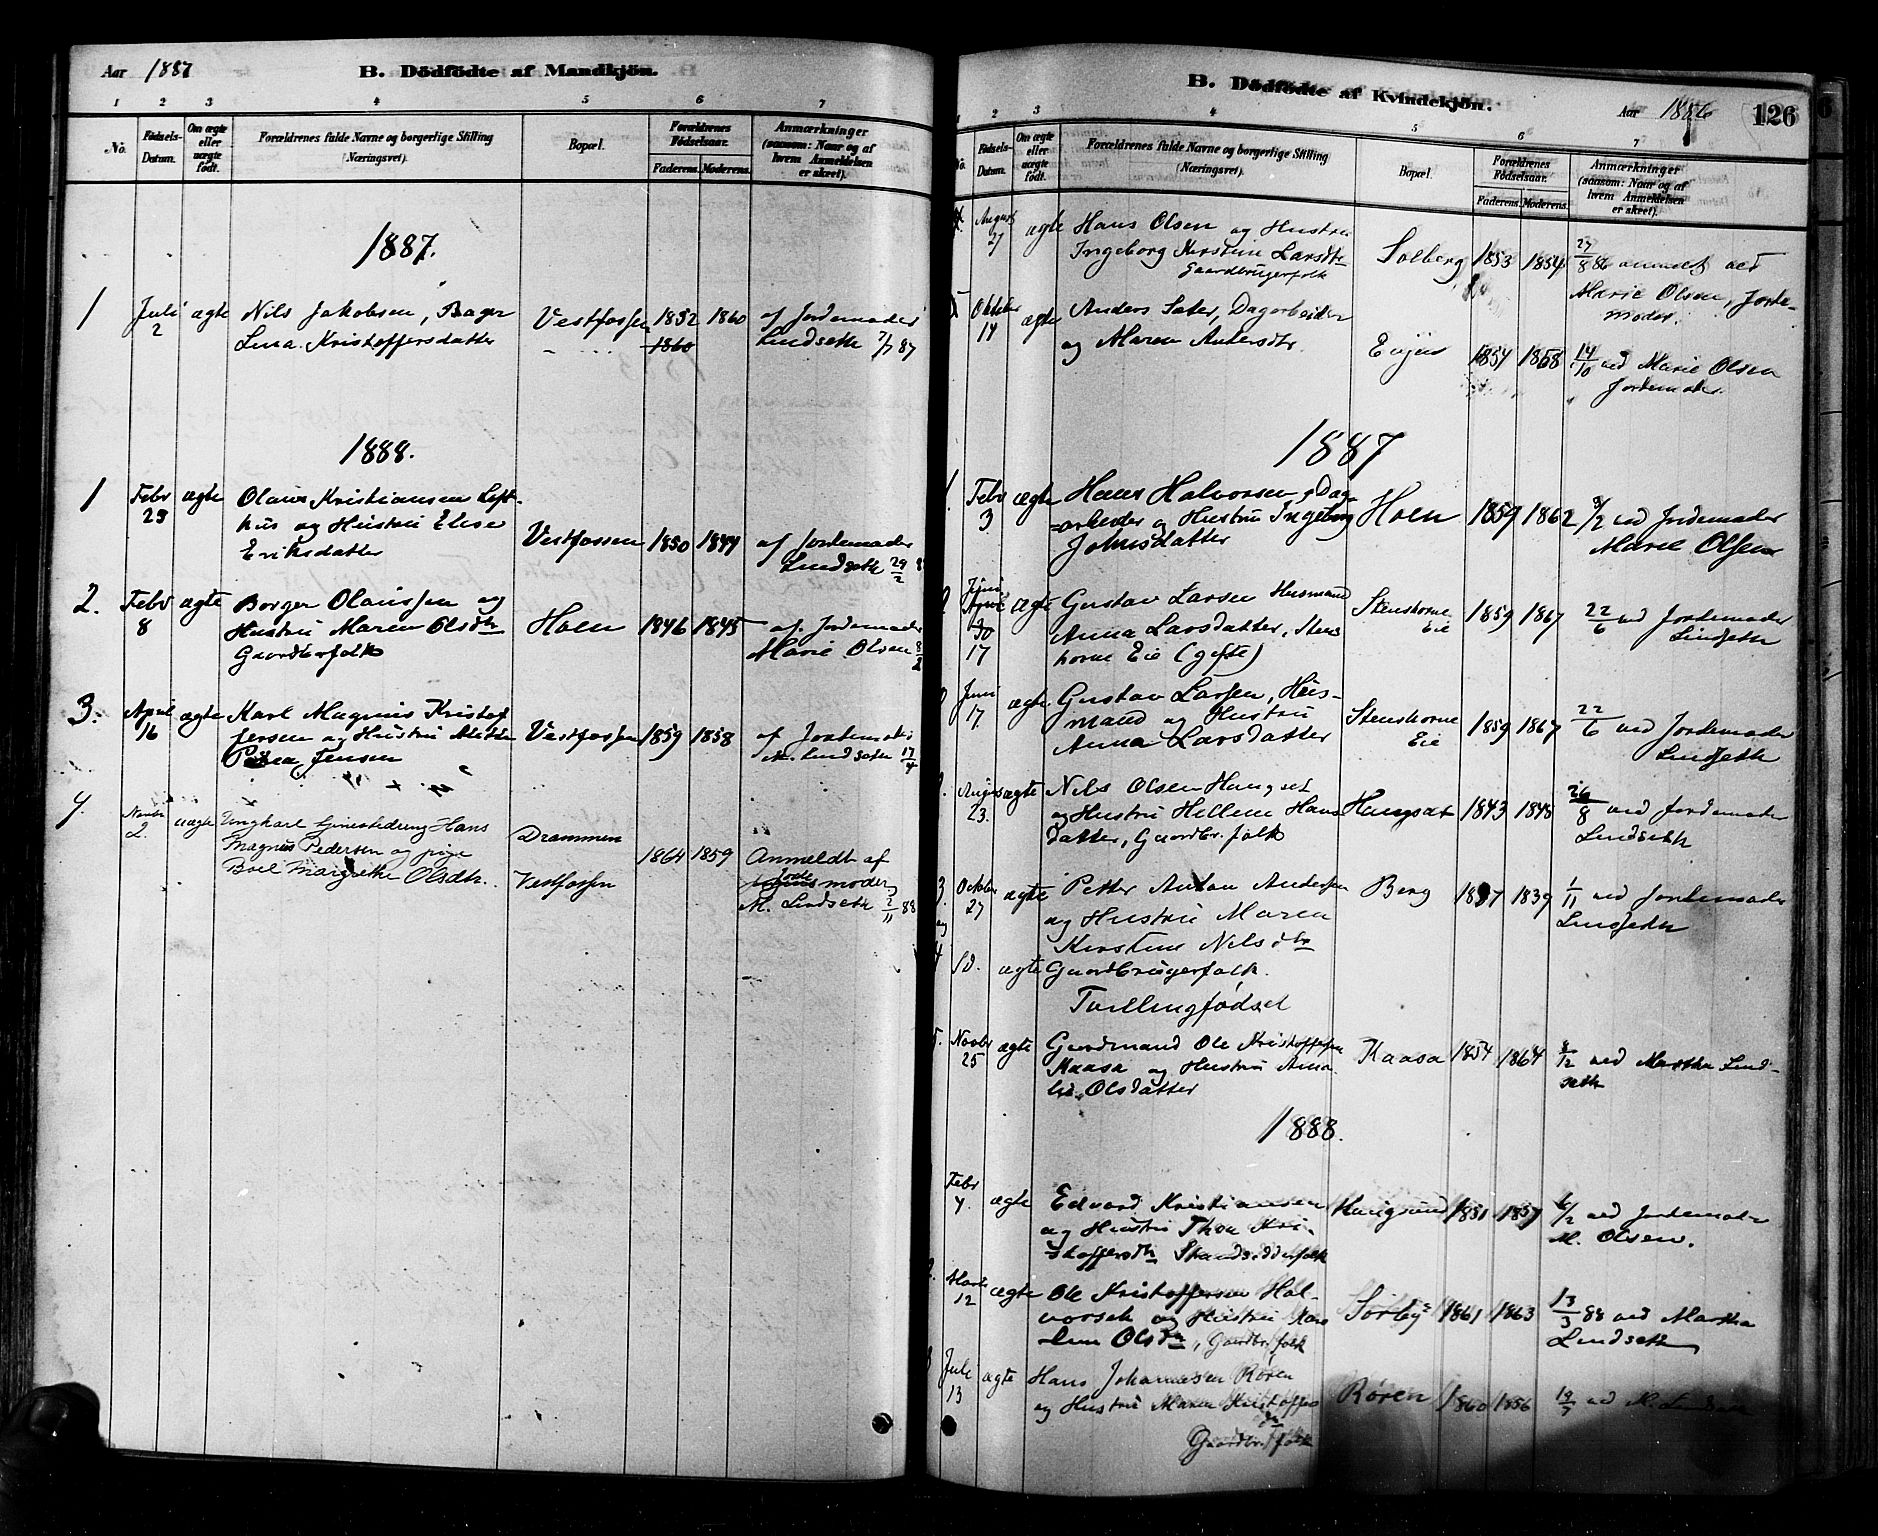 Aar 1887
B. Dödfödte af Mandkjön.
1 2 3 4 5 6 7
No. Födsels-Datum. Om ægte eller uægte födt. Forældrenes fulde Navne og borgerlige Stilling (Næringsvei). Bopæl. Forældrenes Födselsaar. Faderens. Moderens. Anmærkninger (saasom: Naar og af hvem Anmeldelsen er skeet).
1887.
1 Juli 2 ægte Nils Jakobsen, Bager Vestfossen 1852 1860 af Jordemoder
Lina Kristoffersdatter 1860 Lindseth 7/7 87
1888.
1 Febr 29 ægte Olaus Kristiansen Loft-
hus og Hustru Elise
Eriksdatter Vestfossen 1850 1844 af Jordemoder
Lindseth 29/2 8
2. Febr 8 ægte Borger Olaussen og
Hustru Maren Olsdtr Hoen 1846 1845 af Jordemoder
Gaardbrfolk Marie Olsen 8/2
3. April 16 ægte Karl Magnus Kristof
fersen og Hustru Vestfossen 1859 1858 af Jordemoder
Petrea Jensen M. Lindseth 17/4
4. Novbr 2. uægte Ungkarl Hans
Magnus Pedersen og pige Drammen 1864 1859 Anmeldt af
Boel Margrethe Olsdtr. Vestfossen Jordemoder
M. Lindseth 2/11 88
B. Dödfödte af Kvindekjön.
Aar 1886 126
1 2 3 4 5 6 7
No. Födsels-Datum. Om ægte eller uægte födt. Forældrenes fulde Navne og borgerlige Stilling (Næringsvei). Bopæl. Forældrenes Födselsaar. Faderens. Moderens. Anmærkninger (saasom: Naar og af hvem Anmeldelsen er skeet).
4. August 27 ægte Hans Olsen og Hustru
Ingeborg Kirstine Larsdtr Solberg 1853 1854 27/8 86 anmeldt ved
Gaardbrugerfolk Marie Olsen, Jorde-
moder.
5 Oktober 14 ægte Anders Sater, Dagarbeider
og Maren Andersdtr. 1854 1858 14/10 ved Marie Olsen
Jordemoder.
1887
1. Febr 3 ægte Hans Halvorsen, Dag-
arbeider og Hustru Ingeborg Hoen 1859 1862 9/2 ved Jordemoder
Johnsdatter Marie Olsen
2 Juni 17 ægte Gustav Larsen Husmand Stenshorne 1859 1867 22/6 ved Jordemoder
Anna Larsdatter, Stens Eie Lindseth
horne Eie (gifte)
Juni 17 ægte Gustav Larsen, Hus-
mand og Hustru Stenshorne 1859 1867 22/6 ved Jordemoder
Anna Larsdatter Eie Lindseth
August 23. ægte Nils Olsen Haugset
og Hustru Hellene Hans Haugsat 1843 1848 26/8 ved Jordemoder
datter, Gaardbr. folk Lindseth
3. Octobr 27 ægte Petter Anton Andersen Berg 1837 1839 1/11 ved Jordemoder
og og Hustru Maren Lindseth
4 Kirstine Nilsdtr
Sd. ægte Gaardbrugerfolk.
Tvillingfødsel
5. Novbr 25 ægte Gaardmand Ole Kristoffersen
Kaasa og Hustru Ama- Kaasa 1854 1864 8/12 ved Martha Lind-
lie, Olsdatter seth
1888.
Febr 4. ægte Edvard Kristiansen Haugsund 1851 1857 6/2 ved Jordemoder
og Hustru Thea Kri- M. Olsen.
stoffersdtr Strandsidderfolk
2. Marts 12 ægte Ole Kristoffersen Hal-
vorsek og Hustru Kare Sørby 1861 1863 13/3 88 ved Martha
Olsdtr, Gaardbr. folk Lindseth
3 Juli 13 ægte Hans Johannesen Røren
og Hustru Maren Kristoffers Røren 1860 1856 19/7 ved M. Lindseth
dtr
Gaardbr. folk